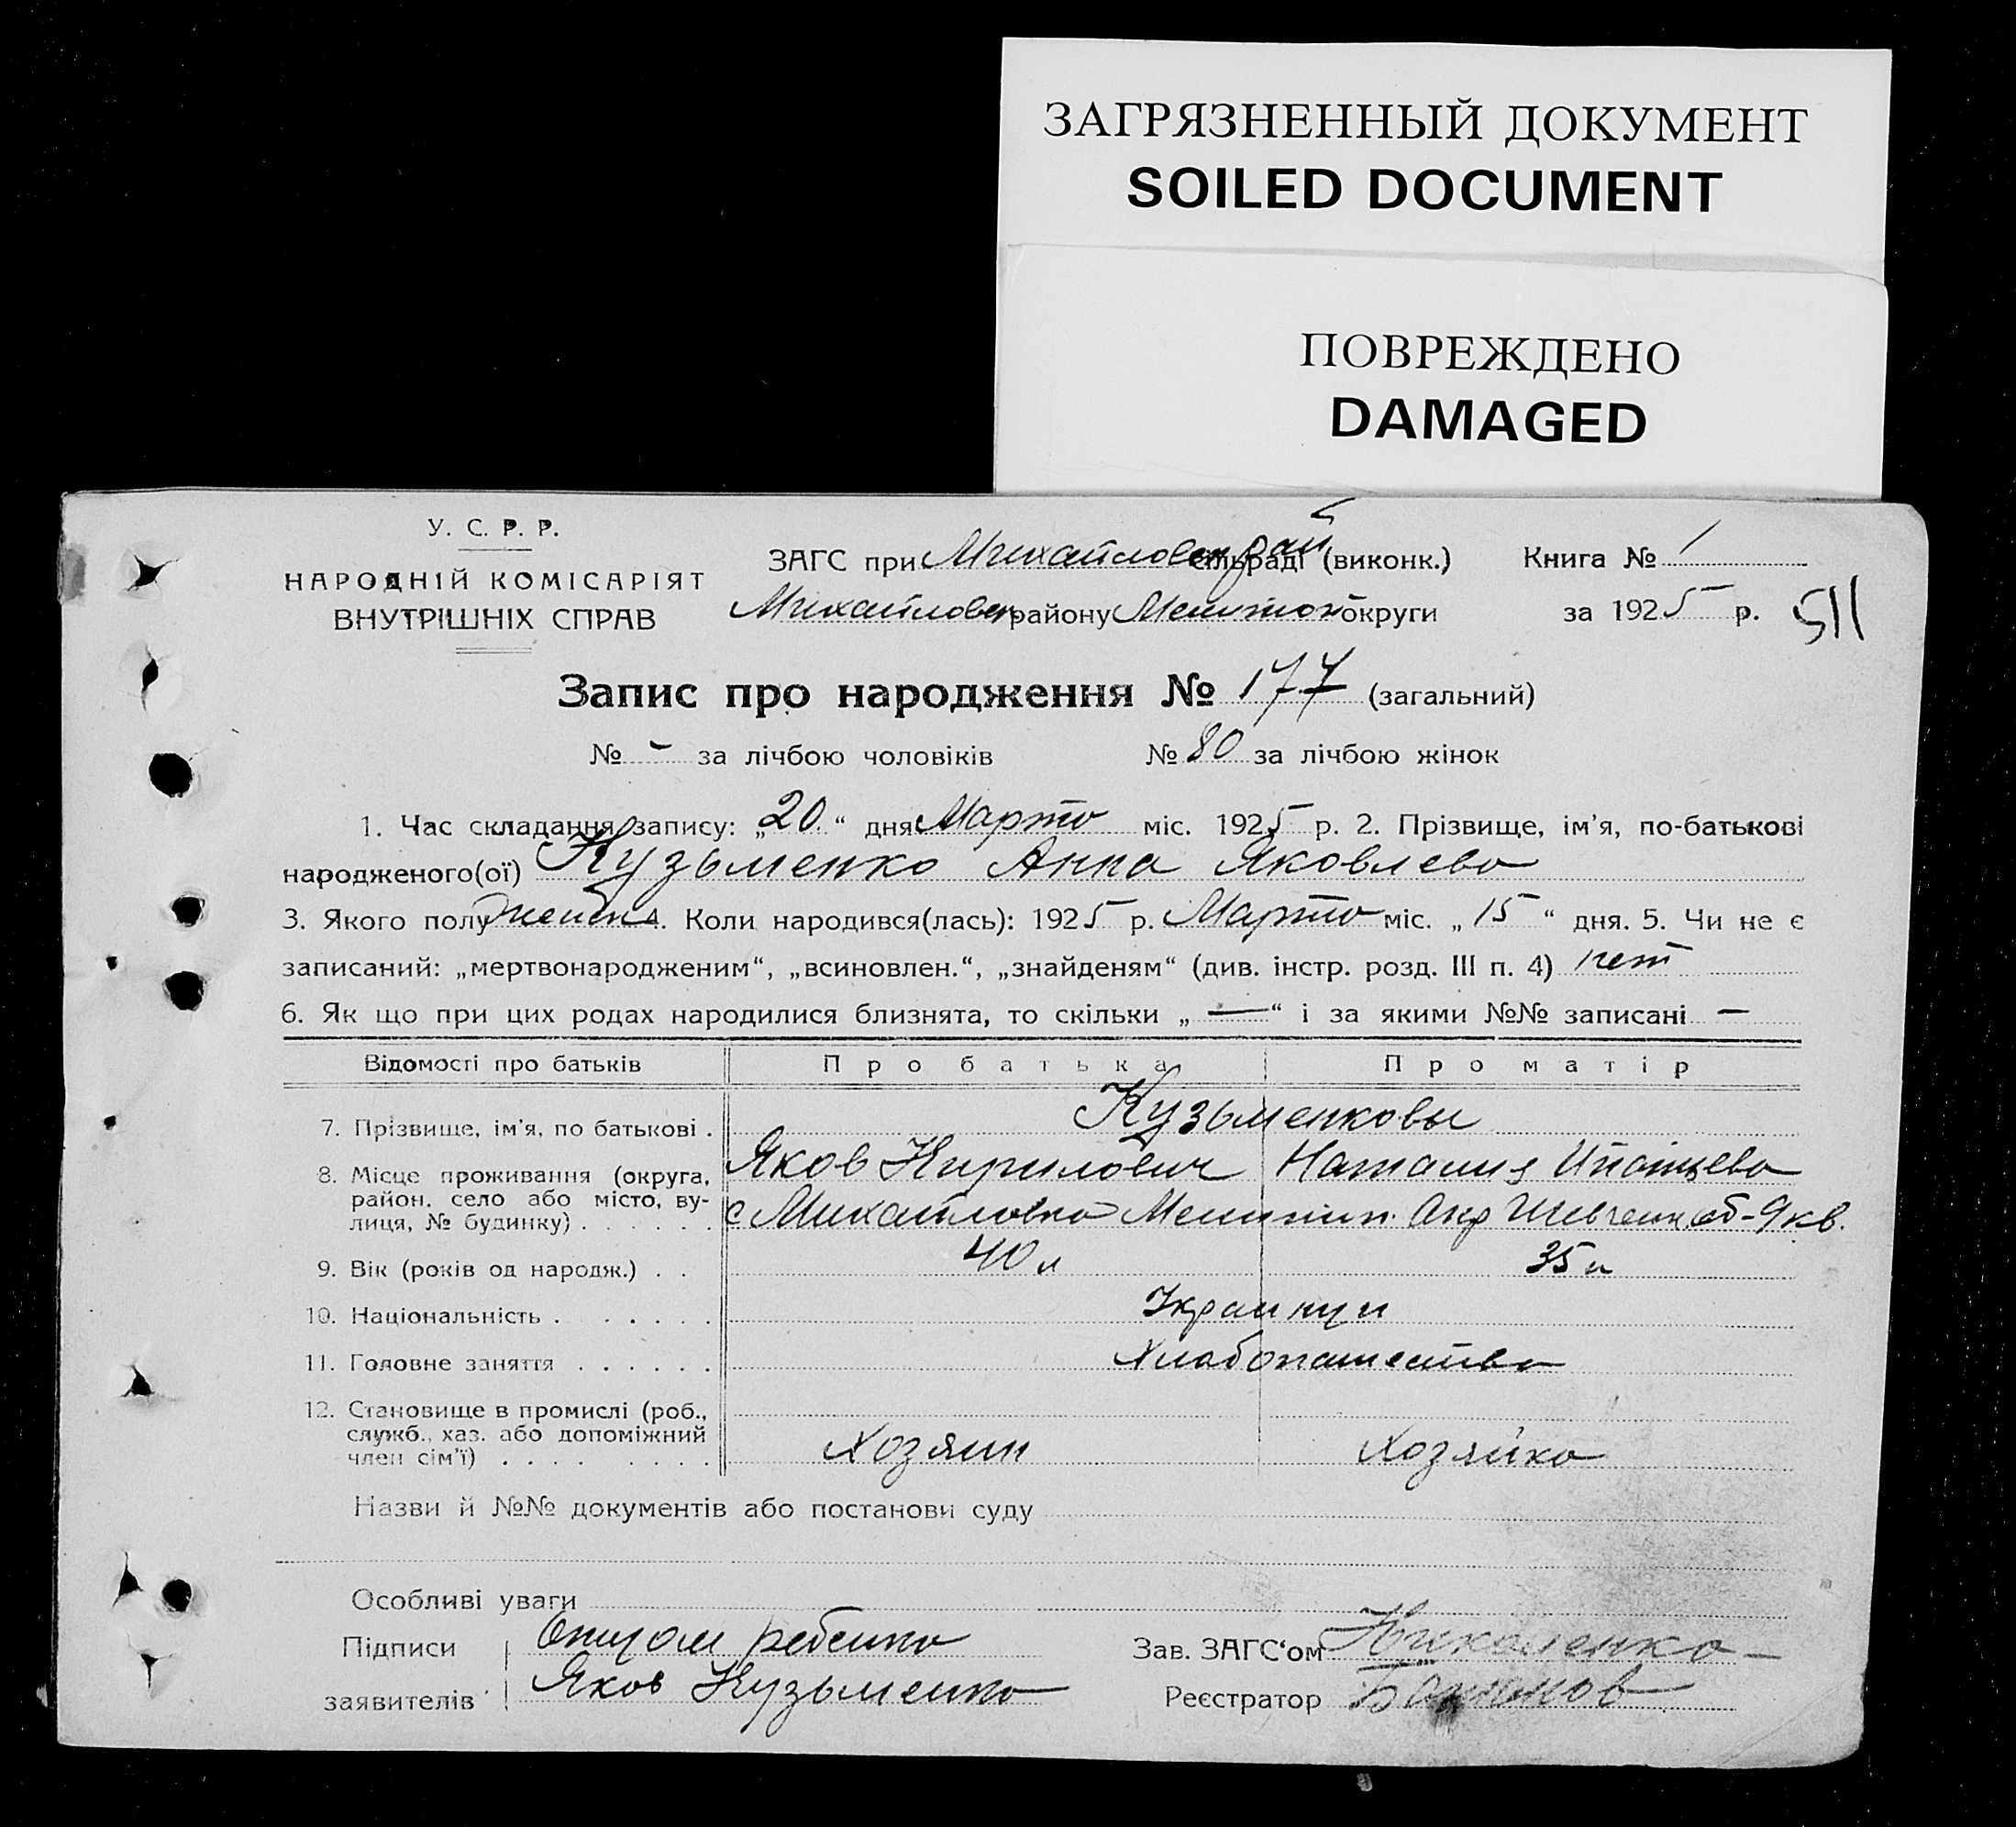 ЗАГРЯЗНЕННЫЙ ДОКУМЕНТ
SOILED DOCUMENT
ПОВРЕЖДЕНО
DAMAGED
У. С. Р. Р.
НАРОДНІЙ КОМІСАРІЯТ
ВНУТРІШНІХ СПРАВ
ЗАГС при Михайловск рай сільраді (виконк.) Книга № 1
Михайловск району Мелитоп округи за 1925 р.
511
Запис про народження № 177 (загальний)
№ - за лічбою чоловіків № 80 за лічбою жінок
1. Час складання запису: „20“ дня Марта міс. 1925 р. 2. Прізвище, ім'я, по-батькові
народженого(ої) Кузьменко Анна Яковлева
3. Якого полу женск 4. Коли народився(лась): 1925 р. Марта міс. „15“ дня. 5. Чи не є
записаний: „мертвонародженим“, „всиновлен.“, „знайденям“ (див. інстр. розд. III п. 4) нет
6. Як що при цих родах народилися близнята, то скільки „—“ і за якими №№ записані —
Відомості про батьків Про батька Про матір
7. Прізвище, ім'я, по батькові . Кузьменковы
Яков Кирилович Наталия
8. Місце проживання (округа,
район, село або місто, ву-
лиця, № будинку) . . . . . . с Михайловка Мелитоп. Окр Шевченк об-9кв.
9. Вік (років од народж.) . . 40 л 35 л
10. Національність . . . . . . Украинци
11. Головне заняття . . . . . . Хлебопашество
12. Становище в промислі (роб.,
служб., хаз. або допоміжний
член сім'ї) . . . . . . . . Хозяин Хозяйка
Назви й №№ документів або постанови суду
Особливі уваги
Підписи Отцом ребенка Зав. ЗАГС‘ом Николенко
заявителів Яков Кузьменко Реєстратор